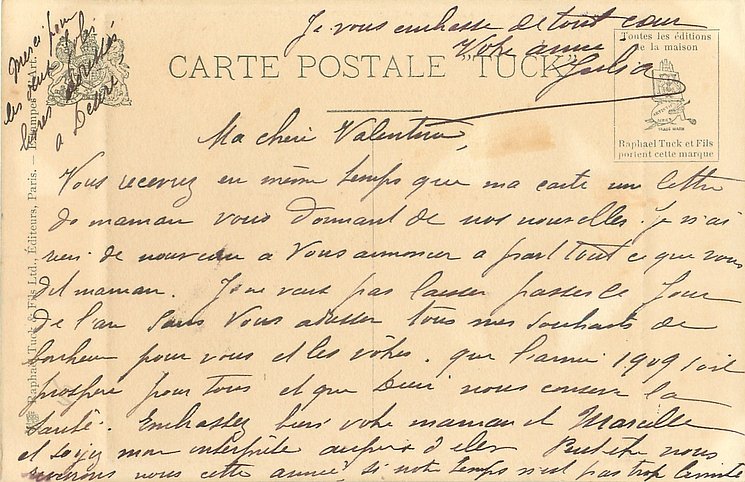 Je vous embrasse de tout cœur
Votre amie
Julia
Merci pour
les deux jolies
à
CARTE POSTALE "TUCK"
Toutes les éditions
de la maison
TRADE MARK
Raphael Tuck et Fils
portent cette marque
Raphael Tuck & Fils Ltd., Éditeurs, Paris. — Estampes d'Art.
Ma cheri Valentine,
Vous recevrez en même temps que ma carte un lettre
de maman vous donnant de nos nouvelles. Je n'ai
rien de nouveau a vous annoncer a part tout ce que vous
dit maman. Je ne veux pas laisser passer le Jour
de l'an sans vous adresser tous mes souhaits de
bonheur pour vous et les vôtres. que l'année 1909 soit
prospere pour tous et que Dieu nous conserve la
santé. Embrassez bien votre maman et Marcelle
et soyez mon interprête auprès d'elles Peut etre nous
verrons nous cette année, si notre temps n'est pas trop limité